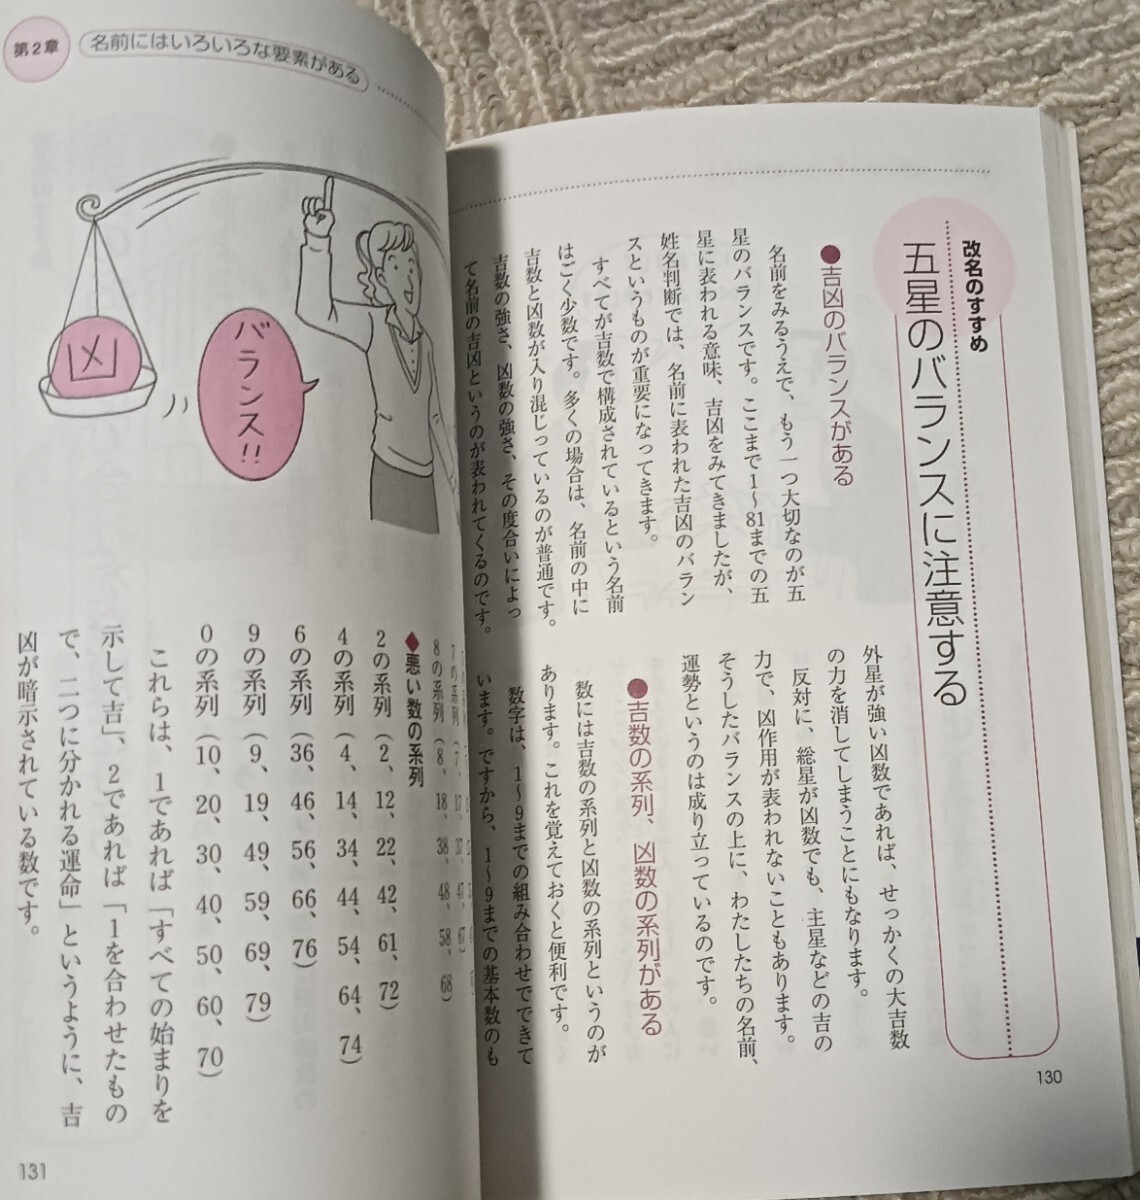 改名のすすめ
五星のバランスに注意する
●吉凶のバランスがある
名前をみるうえで、もう一つ大切なのが五
星のバランスです。ここまで1～81までの五
星に表われる意味、吉凶をみてきましたが、
姓名判断では、名前に表われた吉凶のバラン
スというものが重要になってきます。
すべてが吉数で構成されているという名前
はごく少数です。多くの場合は、名前の中に
吉数と凶数が入り混じっているのが普通です。
吉数の強さ、凶数の強さ、その度合いによっ
て名前の吉凶というのが表われてくるのです。
外星が強い凶数であれば、せっかくの大吉数
の力を消してしまうことにもなります。
反対に、総星が凶数でも、主星などの吉の
力で、凶作用が表われないこともあります。
そうしたバランスの上に、わたしたちの名前、
運勢というのは成り立っているのです。
●吉数の系列、凶数の系列がある
数には吉数の系列と凶数の系列というのが
あります。これを覚えておくと便利です。
数字は、1～9までの組み合わせでできて
います。ですから、1～9までの基本数のも
130
第2章
名前にはいろいろな要素がある
凶
バランス!!
8の系列（8、18、38、48、58、68）
◆悪い数の系列
2の系列（2、12、22、42、61、72）
4の系列（4、14、34、44、54、64、74）
6の系列（36、46、56、66、76）
9の系列（9、19、49、59、69、79）
0の系列（10、20、30、40、50、60、70）
これらは、1であれば「すべての始まりを
示して吉」、2であれば「1を合わせたもの
で、二つに分かれる運命」というように、吉
凶が暗示されている数です。
131